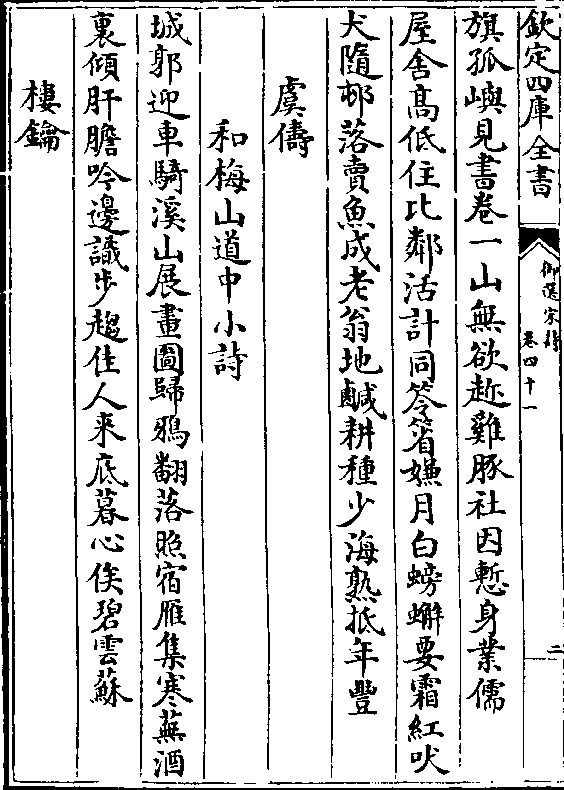 欽定四庫全書
御選宋詩
卷四十一
二
旗孤嶼見書卷一山無欲趂雞豚社因慙身業儒
屋舍髙低住比鄰活計同笭箵嫌月白螃蠏要霜紅吠
犬隨邨落賣魚成老翁地鹹耕種少海熟抵年豐
虞儔
和梅山道中小詩
城郭迎車騎溪山展畫圖歸鴉翻落照宿雁集寒蕪酒
裏傾肝膽吟邊識步趨佳人來底暮心俟碧雲蘇
樓鑰